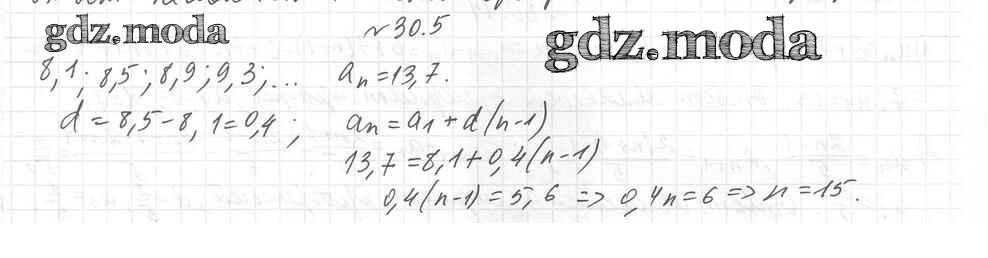 gdz.moda
№30.5
gdz.moda
8,1; 8,5; 8,9; 9,3; ... aₙ = 13,7.
d = 8,5 - 8,1 = 0,4; aₙ = a₁ + d(n-1)
13,7 = 8,1 + 0,4(n-1)
0,4(n-1) = 5,6 => 0,4n = 6 => n = 15.